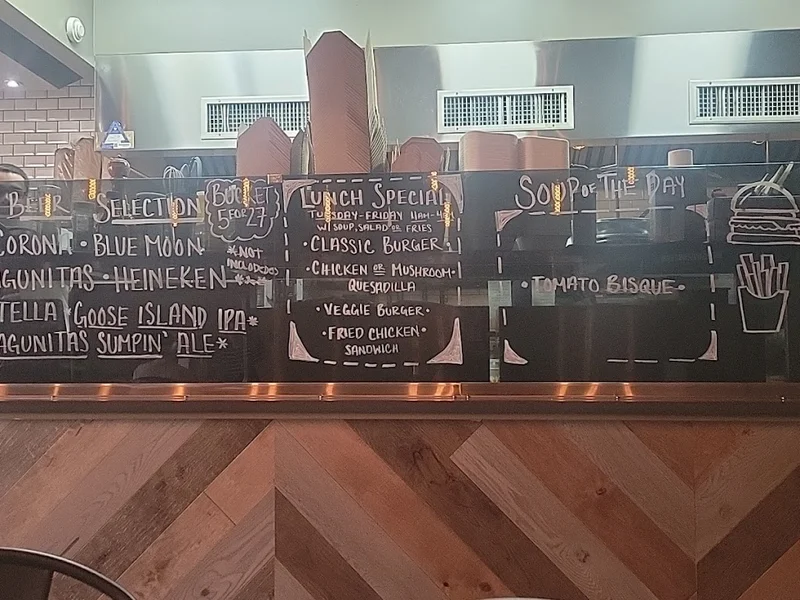 BEER SELECTION
CORONA • BLUE MOON
AGUNITAS • HEINEKEN
TELLA • GOOSE ISLAND IPA*
AGUNITAS SUMPIN' ALE*
BUCKET
5 FOR 27
*NOT
INCLUDED
LUNCH SPECIAL
TUESDAY-FRIDAY 11AM-
W/ SOUP, SALAD OR FRIES
• CLASSIC BURGER •
• CHICKEN OR MUSHROOM •
QUESADILLA
• VEGGIE BURGER •
• FRIED CHICKEN •
SANDWICH
SOUP OF THE DAY
• TOMATO BISQUE •